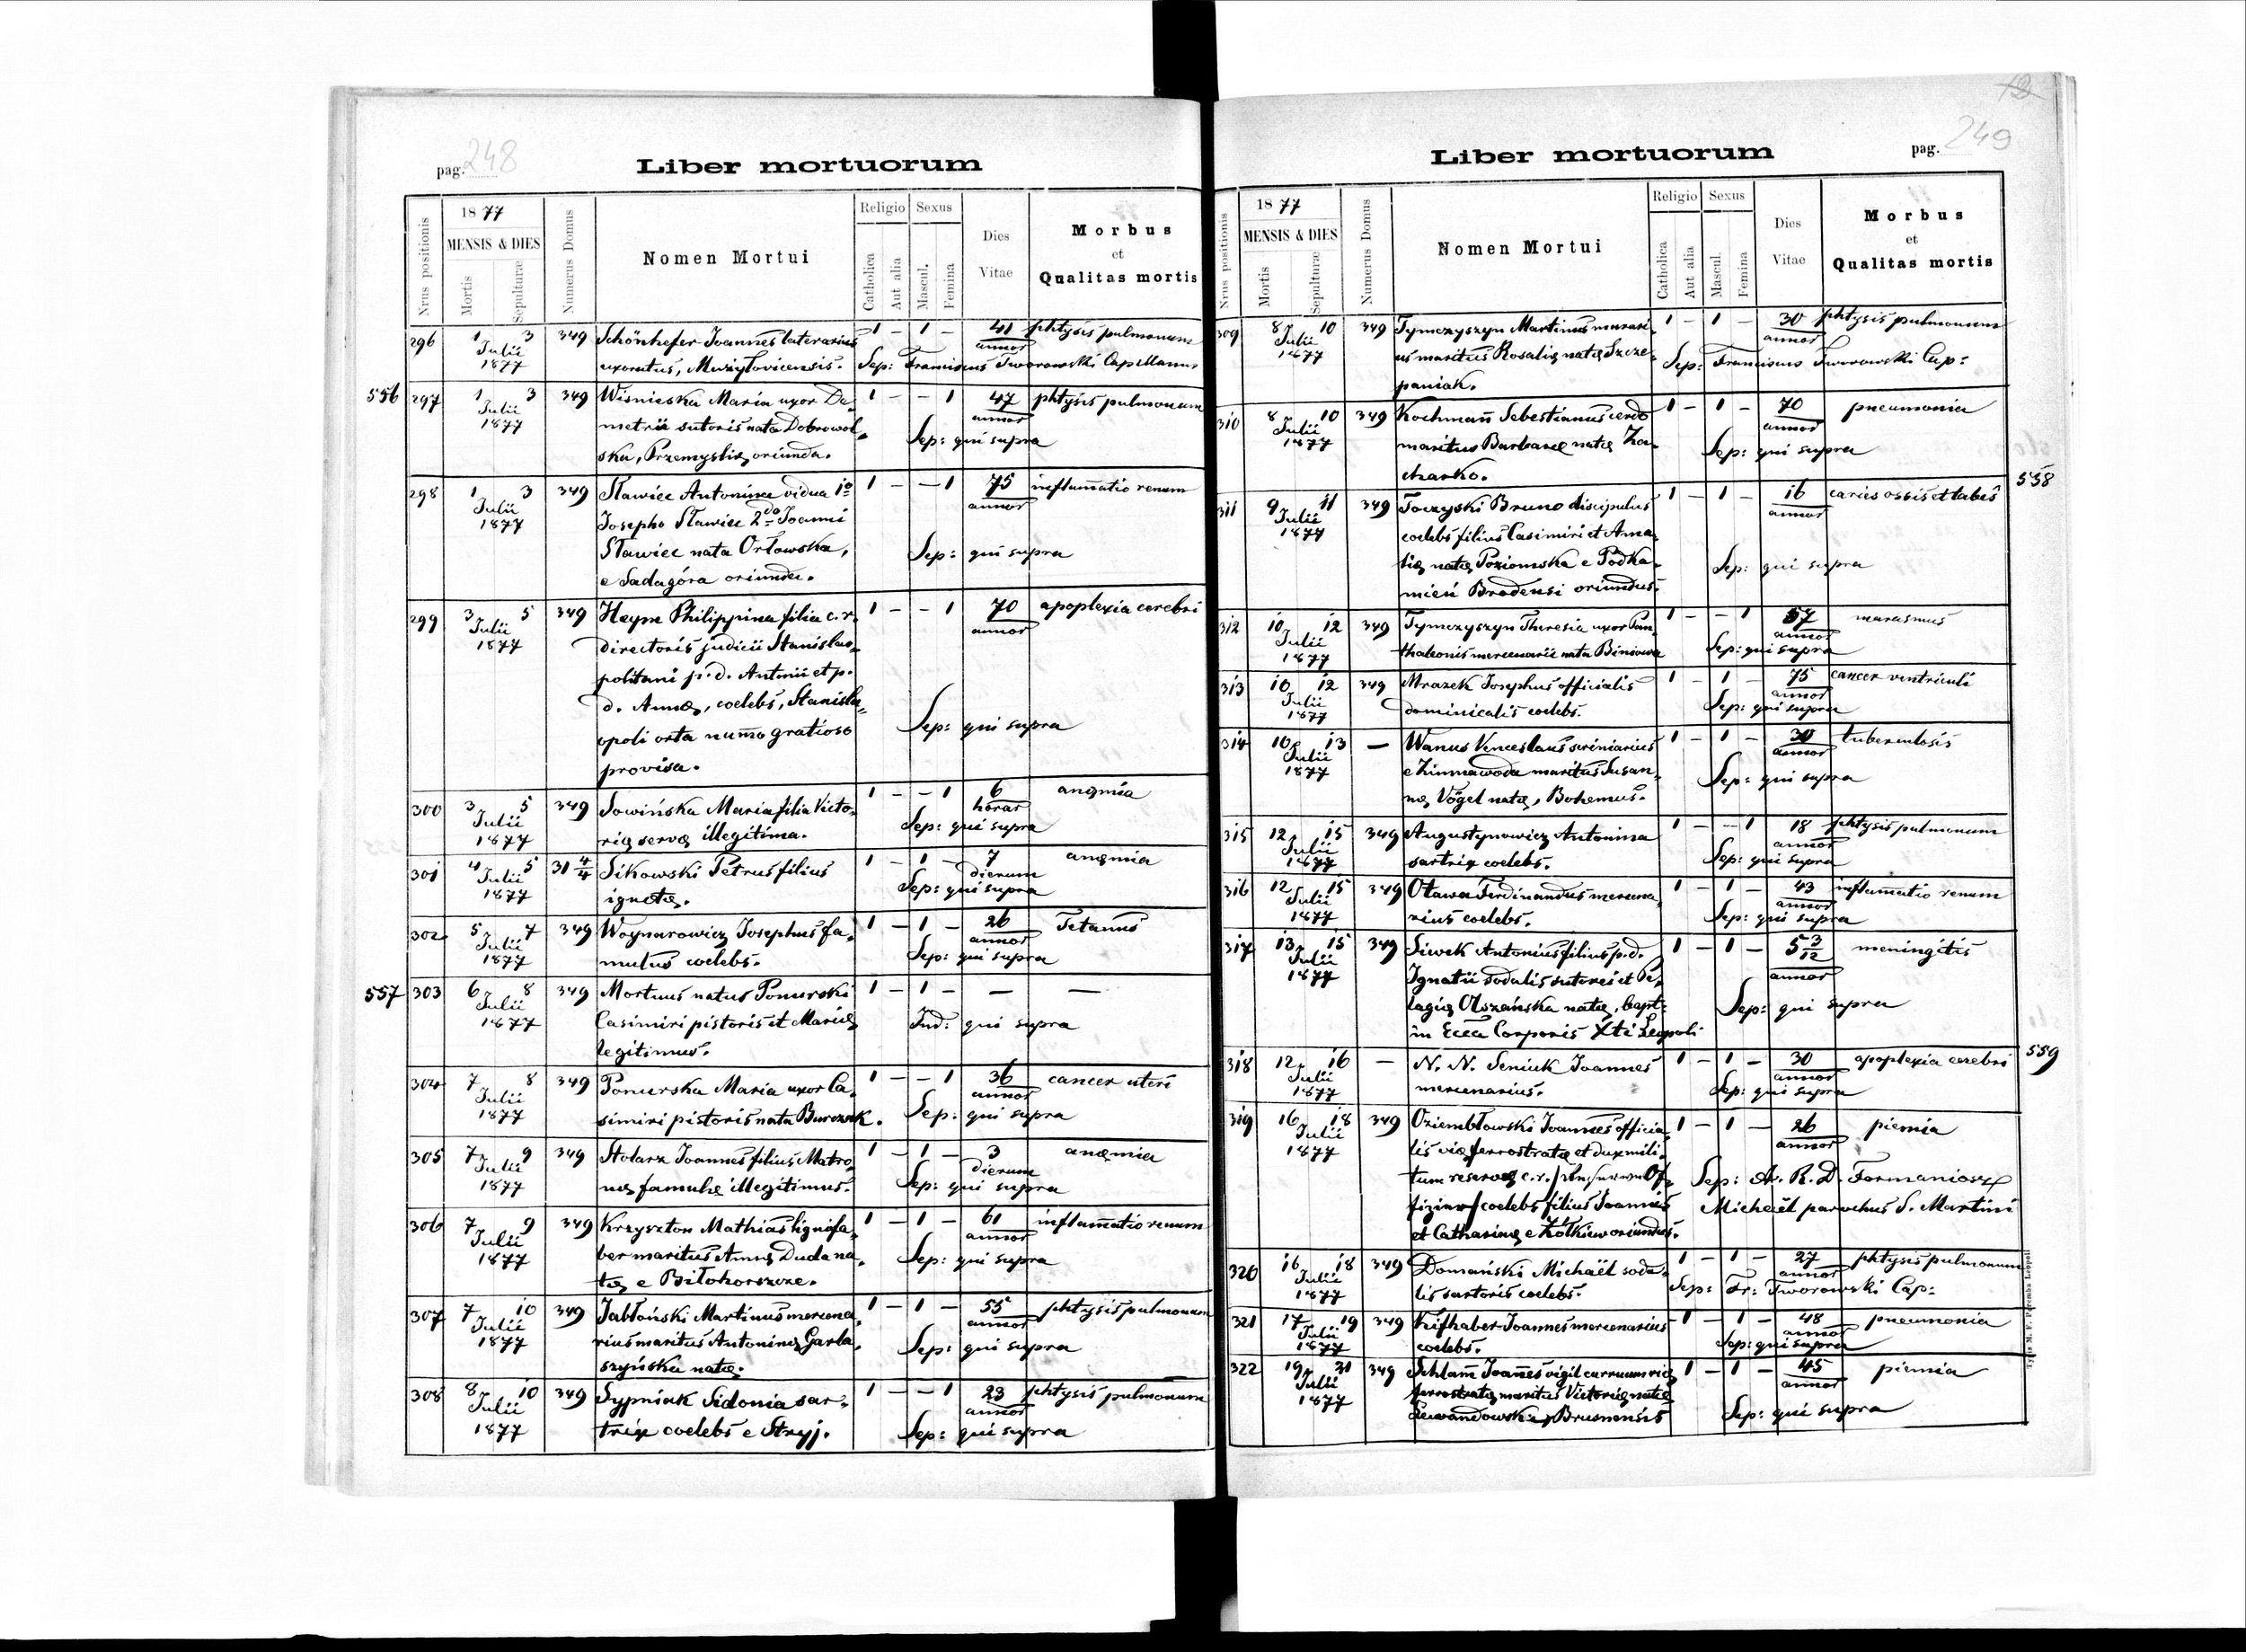 pag. 248
Liber mortuorum
Nrus positionis
1877
MENSIS & DIES
Mortis
Sepulturæ
Numerus Domus
Nomen Mortui
Religio
Catholica
Aut alia
Sexus
Mascul.
Femina
Dies
Vitae
Morbus
et
Qualitas mortis
296 1 3 349 Schönhefer Joannes laterarius 1 – 1 – 41 phtysis pulmonum
Julii annor
1877 uxoratus, Muzyłovicensis. Sep: Franciscus Tworowski Capellanus
556 297 1 3 349 Wisnieska Maria uxor De- 1 – – 1 47 phtysis pulmonum
Julii annor
1877 metrii sutoris nata Dobrowol- Sep: qui supra
ska, Przemysliæ oriunda.
298 1 3 349 Sławiec Antonina vidua 1o 1 – – 1 75 inflammatio renum
Julii annor
1877 Josepho Sławiec 2do Joanni
Sławiec nata Orłowska, Sep: qui supra
e Sadagóra oriunda.
299 3 5 349 Heym Philippina filia c.r. 1 – – 1 70 apoplexia cerebri
Julii annor
1877 directoris judicii Stanislao-
politani p. d. Antonii et p.
d. Annæ, coelebs, Stanisla-
opoli orta nummo gratioso Sep: qui supra
provisa.
300 3 5 349 Sowińska Maria filia Victo- 1 – – 1 6 anæmia
Julii horar
1877 riæ servæ illegitima. Sep: qui supra
301 4 5 31 4/4 Sikowski Petrus filius 1 – 1 – 7 anæmia
Julii dierum
1877 ignotæ. Sep: qui supra
302 5 7 349 Woynarowicz Josephus fa- 1 – 1 – 26 Tetanus
Julii annor
1877 mulus coelebs. Sep: qui supra
557 303 6 8 349 Mortuus natus Ponurski 1 – 1 – — —
Julii
1877 Casimiri pistoris et Mariæ Ind: qui supra
legitimus.
304 7 8 349 Ponurska Maria uxor Ca- 1 – – 1 36 cancer uteri
Julii annor
1877 simiri pistoris nata Burczak. Sep: qui supra
305 7 9 349 Stolarz Joannes filius Matro- 1 – 1 – 3 anæmia
Julii dierum
1877 næ famulæ illegitimus. Sep: qui supra
306 7 9 349 Krzyszton Mathias lignifa- 1 – 1 – 61 inflammatio renum
Julii annor
1877 ber maritus Annæ Duda na- Sep: qui supra
tæ e Biłohorszcze.
307 7 10 349 Jabłoński Martinus mercena- 1 – 1 – 55 phtysis pulmonum
Julii annor
1877 rius maritus Antoninæ Garba- Sep: qui supra
szyńska natæ.
308 8 10 349 Sypniak Sidonia sar- 1 – – 1 23 phtysis pulmonum
Julii annor
1877 trix coelebs e Stryj. Sep: qui supra
pag. 249
Liber mortuorum
Nrus positionis
1877
MENSIS & DIES
Mortis
Sepulturæ
Numerus Domus
Nomen Mortui
Religio
Catholica
Aut alia
Sexus
Mascul.
Femina
Dies
Vitae
Morbus
et
Qualitas mortis
309 8 10 349 Tymczyszyn Martinus murari- 1 – 1 – 30 phtysis pulmonum
Julii annor
1877 us maritus Rosaliæ natæ Szcze- Sep: Franciscus Tworowski Cap:
paniak.
310 8 10 349 Kochmann Sebestianus cerdo 1 – 1 – 70 pneumonia
Julii annor
1877 maritus Barbaræ natæ Za- Sep: qui supra
charko.
558
311 9 11 349 Toczyski Bruno discipulus 1 – 1 – 16 caries ossis et tabes
Julii annor
1877 coelebs filius Casimiri et Ama-
liæ natæ Poziomska e Podka- Sep: qui supra
mień Brodensi oriundus.
312 10 12 349 Tymczyszyn Theresia uxor Pan- 1 – – 1 57 marasmus
Julii annor
1877 thaleonis mercenarii nata Biniowa Sep: qui supra
313 10 12 349 Mrazek Josephus officialis 1 – 1 – 75 cancer ventriculi
Julii annor
1877 dominicalis coelebs. Sep: qui supra
314 10 13 — Wanus Venceslaus scriniarius 1 – 1 – 30 tuberculosis
Julii annor
1877 e Zimnawoda maritus Susan- Sep: qui supra
næ Vögel natæ, Bohemus.
315 12 15 349 Augustynowicz Antonina 1 – – 1 18 phtysis pulmonum
Julii annor
1877 sartrix coelebs. Sep: qui supra
316 12 15 349 Otawa Ferdinandus mercena- 1 – 1 – 43 inflammatio renum
Julii annor
1877 rius coelebs. Sep: qui supra
317 13 15 349 Siwek Antonius filius p.d. 1 – 1 – 5 3/12 meningitis
Julii annor
1877 Ignatii sodalis sutoris et Pe-
lagiæ Olszańska natæ, bapt: Sep: qui supra
in Ecca Corporis Xti Leopoli
318 12 16 — N. N. Seniuk Joannes 1 – 1 – 30 apoplexia cerebri 559
Julii annor
1877 mercenarius. Sep: qui supra
319 16 18 349 Oziembłowski Joannes officia- 1 – 1 – 26 piemia
Julii annor
1877 lis viæ ferrostratæ et dux mili-
tum reservæ c.r. Of- Sep: A. R. D. Formaniosz
fizier/ coelebs filius Joannis Michaël parochus S. Martini
et Catharinæ e Żółkiew oriundus.
320 16 18 349 Domański Michaël soda- 1 – 1 – 27 phtysis pulmonum
Julii annor
1877 lis sartoris coelebs. Sep: Fr: Tworowski Cap:
321 17 19 349 Kifhaber Joannes mercenarius 1 – 1 – 48 pneumonia
Julii annor
1877 coelebs. Sep: qui supra
322 19 21 349 Schlam Joannes vigil curruum viæ 1 – 1 – 45 piemia
Julii annor
1877 ferrostratæ maritus Victoriæ natæ
Lewandowska, Brusnensis Sep: qui supra
Typis M. F. Poremba Leopoli